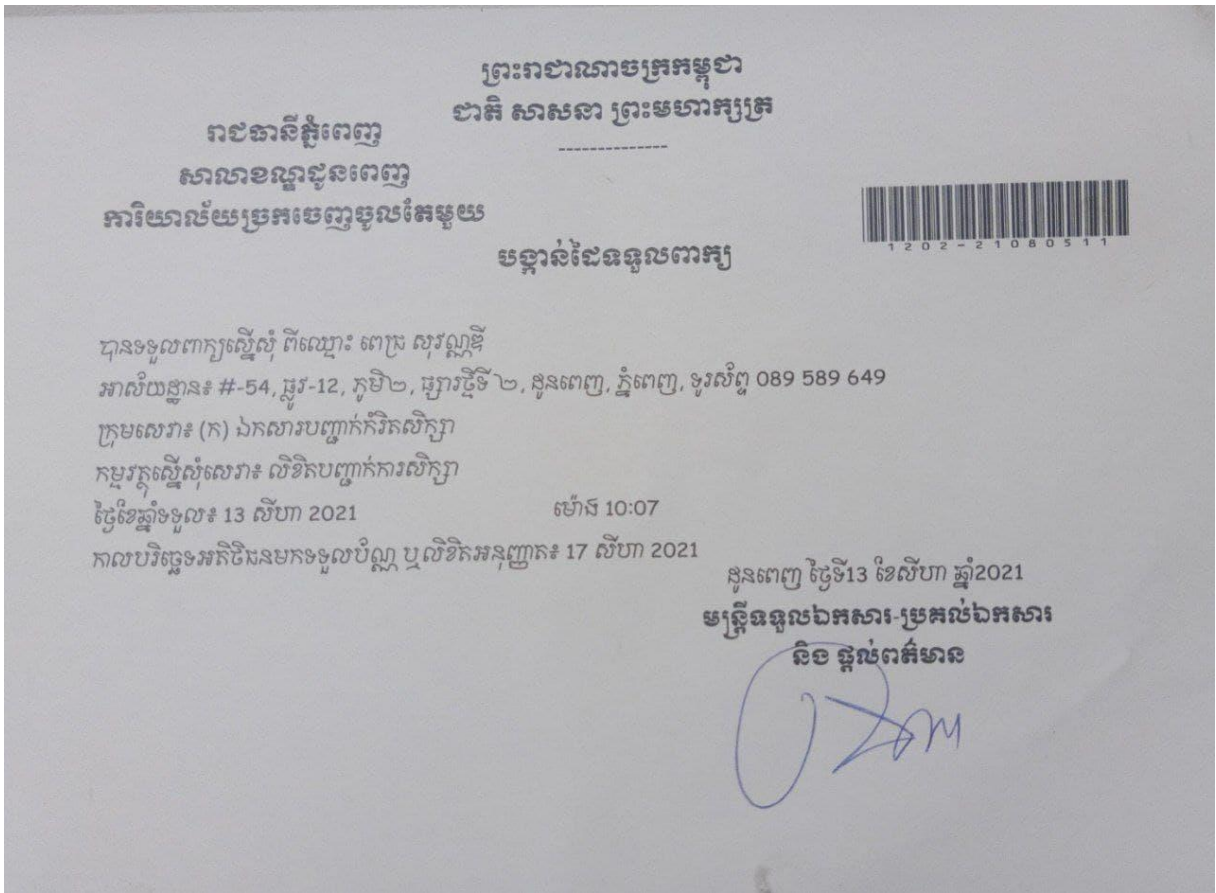 ព្រះរាជាណាចក្រកម្ពុជា
ជាតិ សាសនា ព្រះមហាក្សត្រ
--------------
រាជធានីភ្នំពេញ
សាលាខណ្ឌដូនពេញ
ការិយាល័យច្រកចេញចូលតែមួយ
1202-21080511
បង្កាន់ដៃទទួលពាក្យ
បានទទួលពាក្យស្នើសុំ ពីឈ្មោះ ពេជ្រ សុវណ្ណឌី
អាស័យដ្ឋាន៖ #-54, ផ្លូវ-12, ភូមិ២, ផ្សារថ្មីទី ២, ដូនពេញ, ភ្នំពេញ, ទូរស័ព្ទ 089 589 649
ក្រុមសេវា៖ (ក) ឯកសារបញ្ជាក់កំរិតសិក្សា
កម្មវត្ថុស្នើសុំសេវា៖ លិខិតបញ្ជាក់ការសិក្សា
ថ្ងៃខែឆ្នាំទទួល៖ 13 សីហា 2021 ម៉ោង 10:07
កាលបរិច្ឆេទអតិថិជនមកទទួលប័ណ្ណ ឬលិខិតអនុញ្ញាត៖ 17 សីហា 2021
ដូនពេញ ថ្ងៃទី13 ខែសីហា ឆ្នាំ2021
មន្ត្រីទទួលឯកសារ-ប្រគល់ឯកសារ
និង ផ្តល់ពត៌មាន